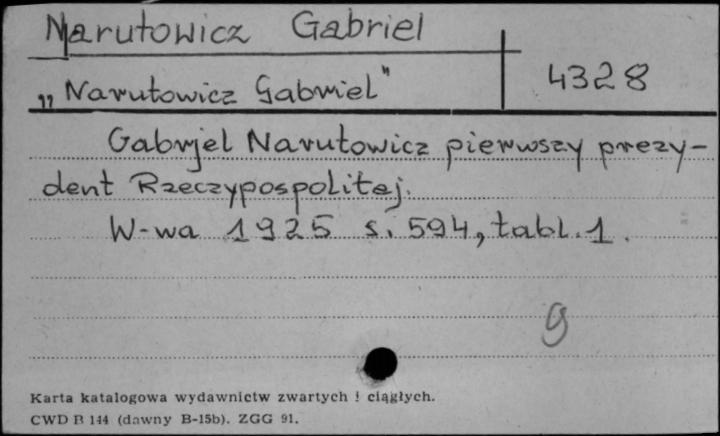 Narutowicz Gabriel
„Narutowicz Gabriel"
4328
Gabrjel Narutowicz pierwszy prezy-
dent Rzeczypospolitej.
W-wa 1925 s. 594, tabl. 1.
9
Karta katalogowa wydawnictw zwartych i ciągłych.
CWD B 144 (dawny B-15b). ZGG 91.